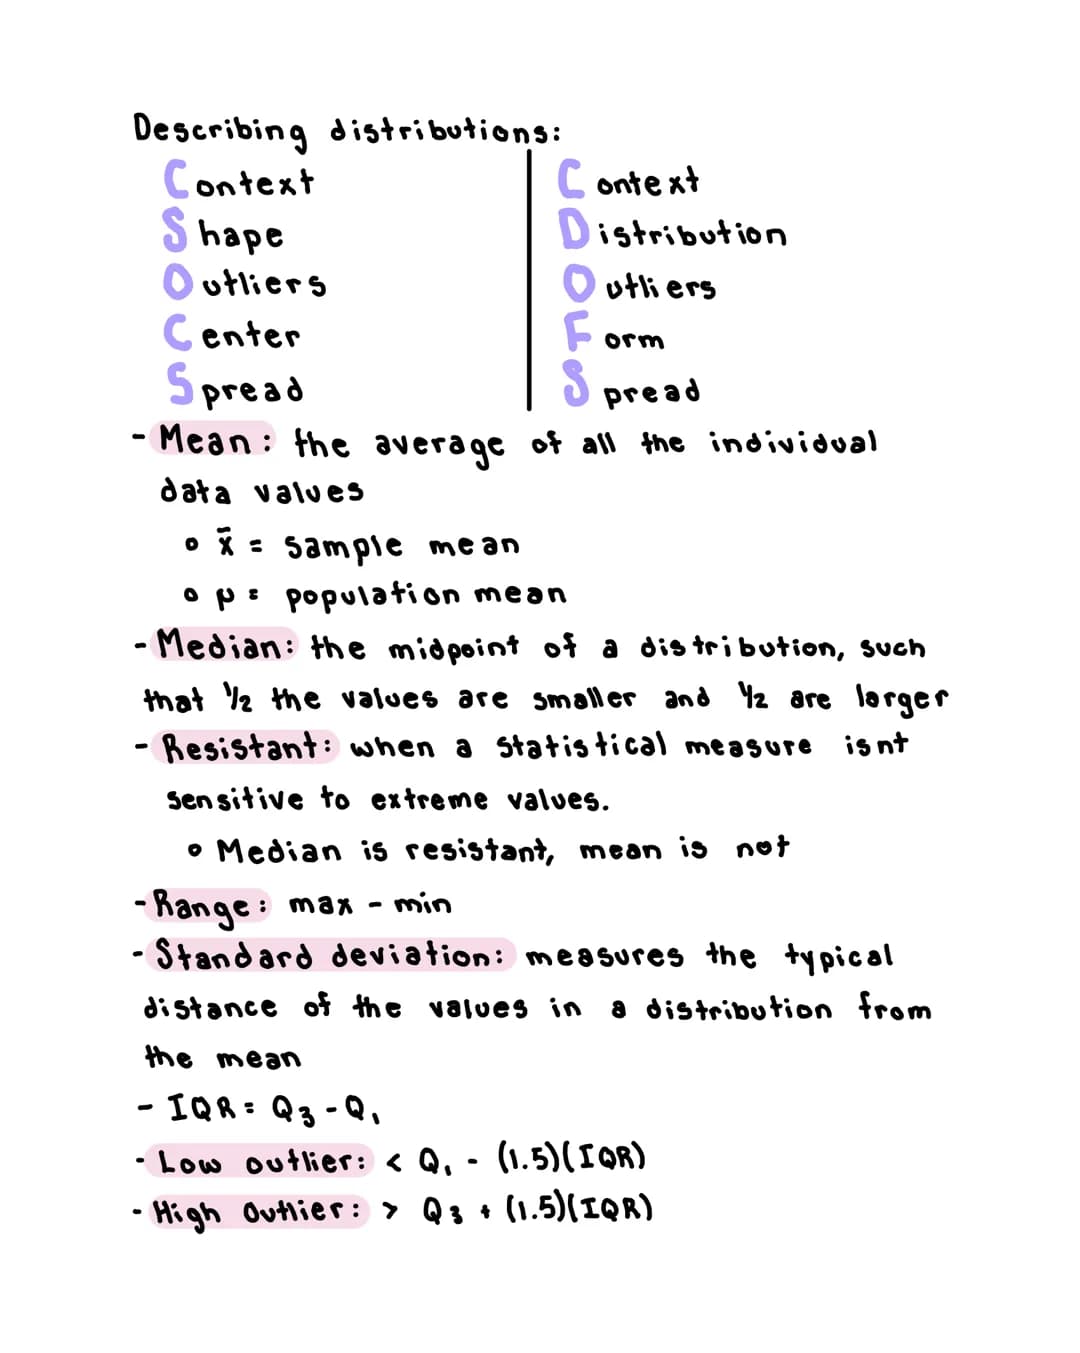 Describing distributions:
Context
Shape
Outliers
Center
Spread
Context
Distribution
Outliers
Form
Spread
- Mean: the average of all the individual
data values
∘ x̄ = sample mean
∘ μ = population mean
- Median: the midpoint of a distribution, such
that ½ the values are smaller and ½ are larger
- Resistant: when a statistical measure isnt
sensitive to extreme values.
∘ Median is resistant, mean is not
- Range: max - min
- Standard deviation: measures the typical
distance of the values in a distribution from
the mean
- IQR = Q₃ - Q₁
- Low outlier: < Q₁ - (1.5)(IQR)
- High Outlier: > Q₃ + (1.5)(IQR)